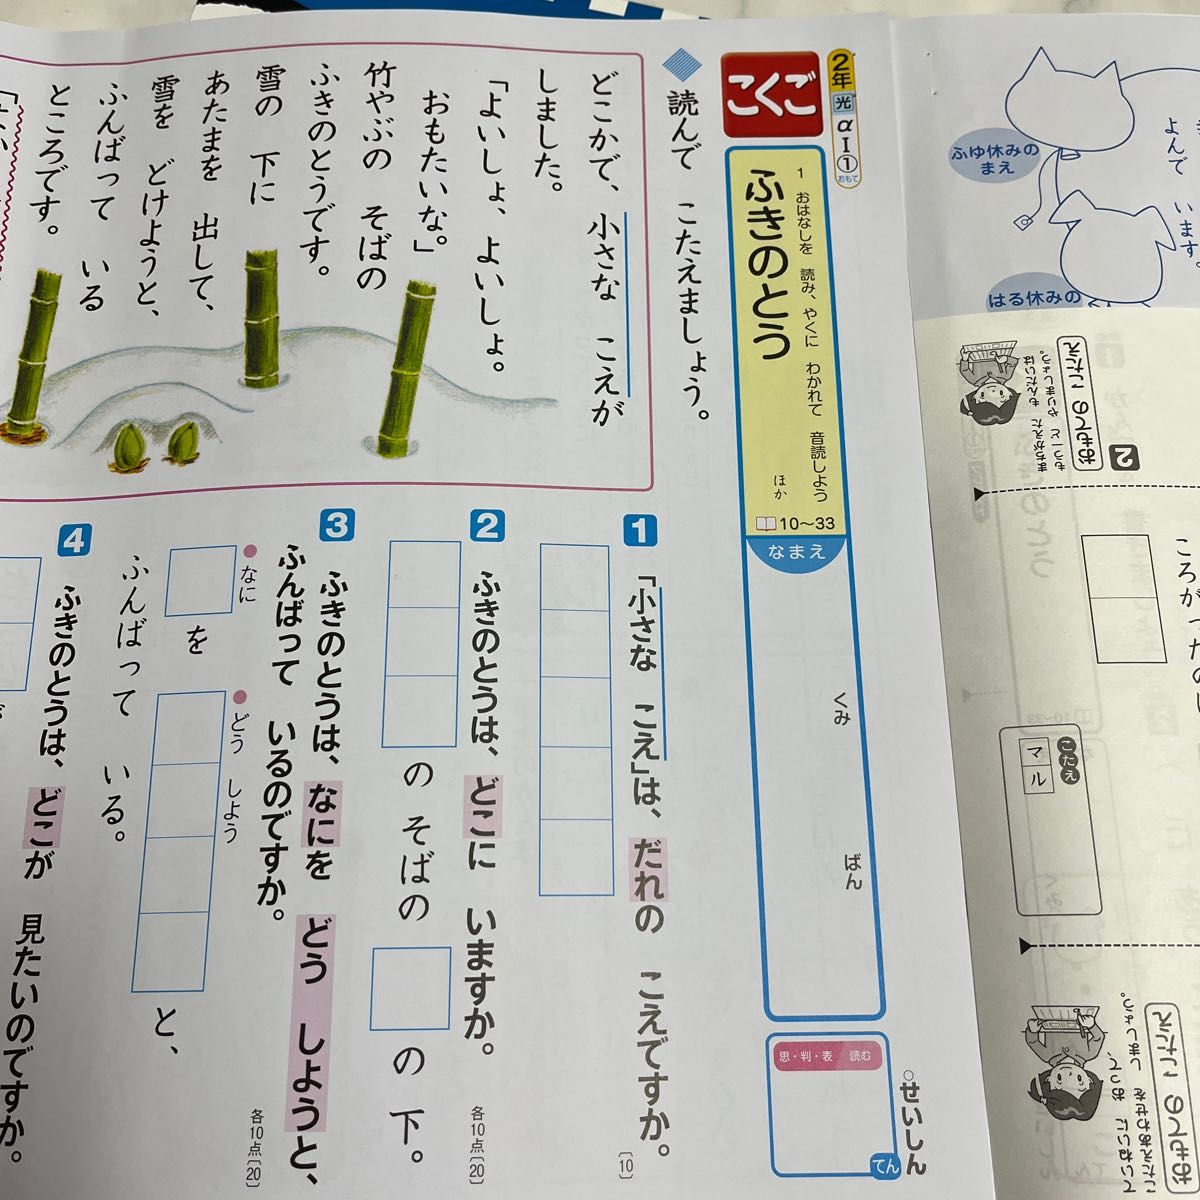 ふゆ休みの
まえ
よんで います。
はる休みの
おもての こたえ
まちがえた もんだいは
もう一ど やりましょう。
2
ころがったの
こたえ
マル
おもての こたえ
ていねいに おって、
こたえあわせを しましょう。
2年 光 αⅠ① おもて
こくご
1 おはなしを 読み、やくに わかれて 音読しよう
ふきのとう
ほか
10〜33
なまえ
くみ
ばん
思・判・表 読む
てん
○せいしん
読んで こたえましょう。
どこかで、小さな こえが
しました。
「よいしょ、よいしょ。
おもたいな。」
竹やぶの そばの
ふきのとうです。
雪の 下に
あたまを 出して、
雪を どけようと、
ふんばって いる
ところです。
1 「小さな こえ」は、だれの こえですか。
〔10〕
2 ふきのとうは、どこに いますか。
各10点〔20〕
の そばの
の 下。
3 ふきのとうは、なにを どう しようと、
ふんばって いるのですか。
各10点〔20〕
なに
を
どう しよう
と、
ふんばって いる。
4 ふきのとうは、どこが 見たいのですか。